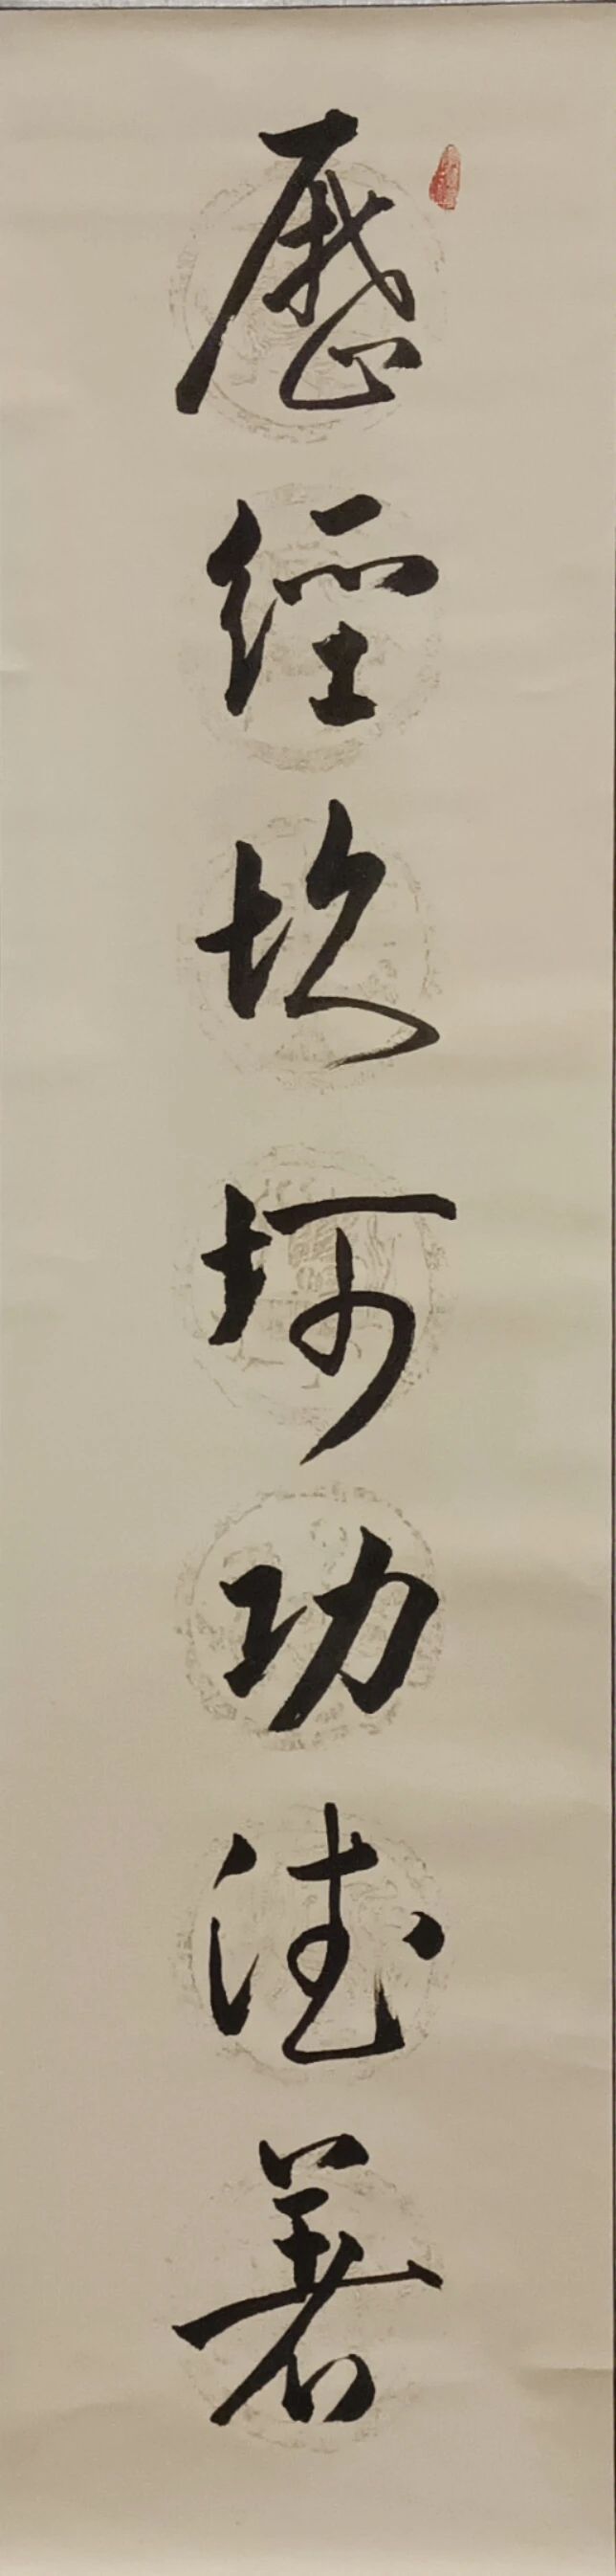 歷經坎坷功德著